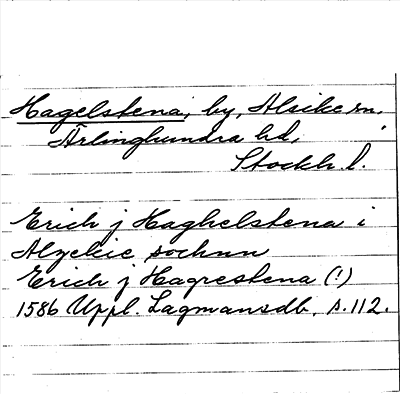 Hagelstena, by, Alsike sn,
Ärlinghundra hd,
Stockh l.
Erich j Haghelstena i
Alzekie sochnn
Erich j Hagrestena (!)
1586 Uppl. Lagmansdb. s. 112.